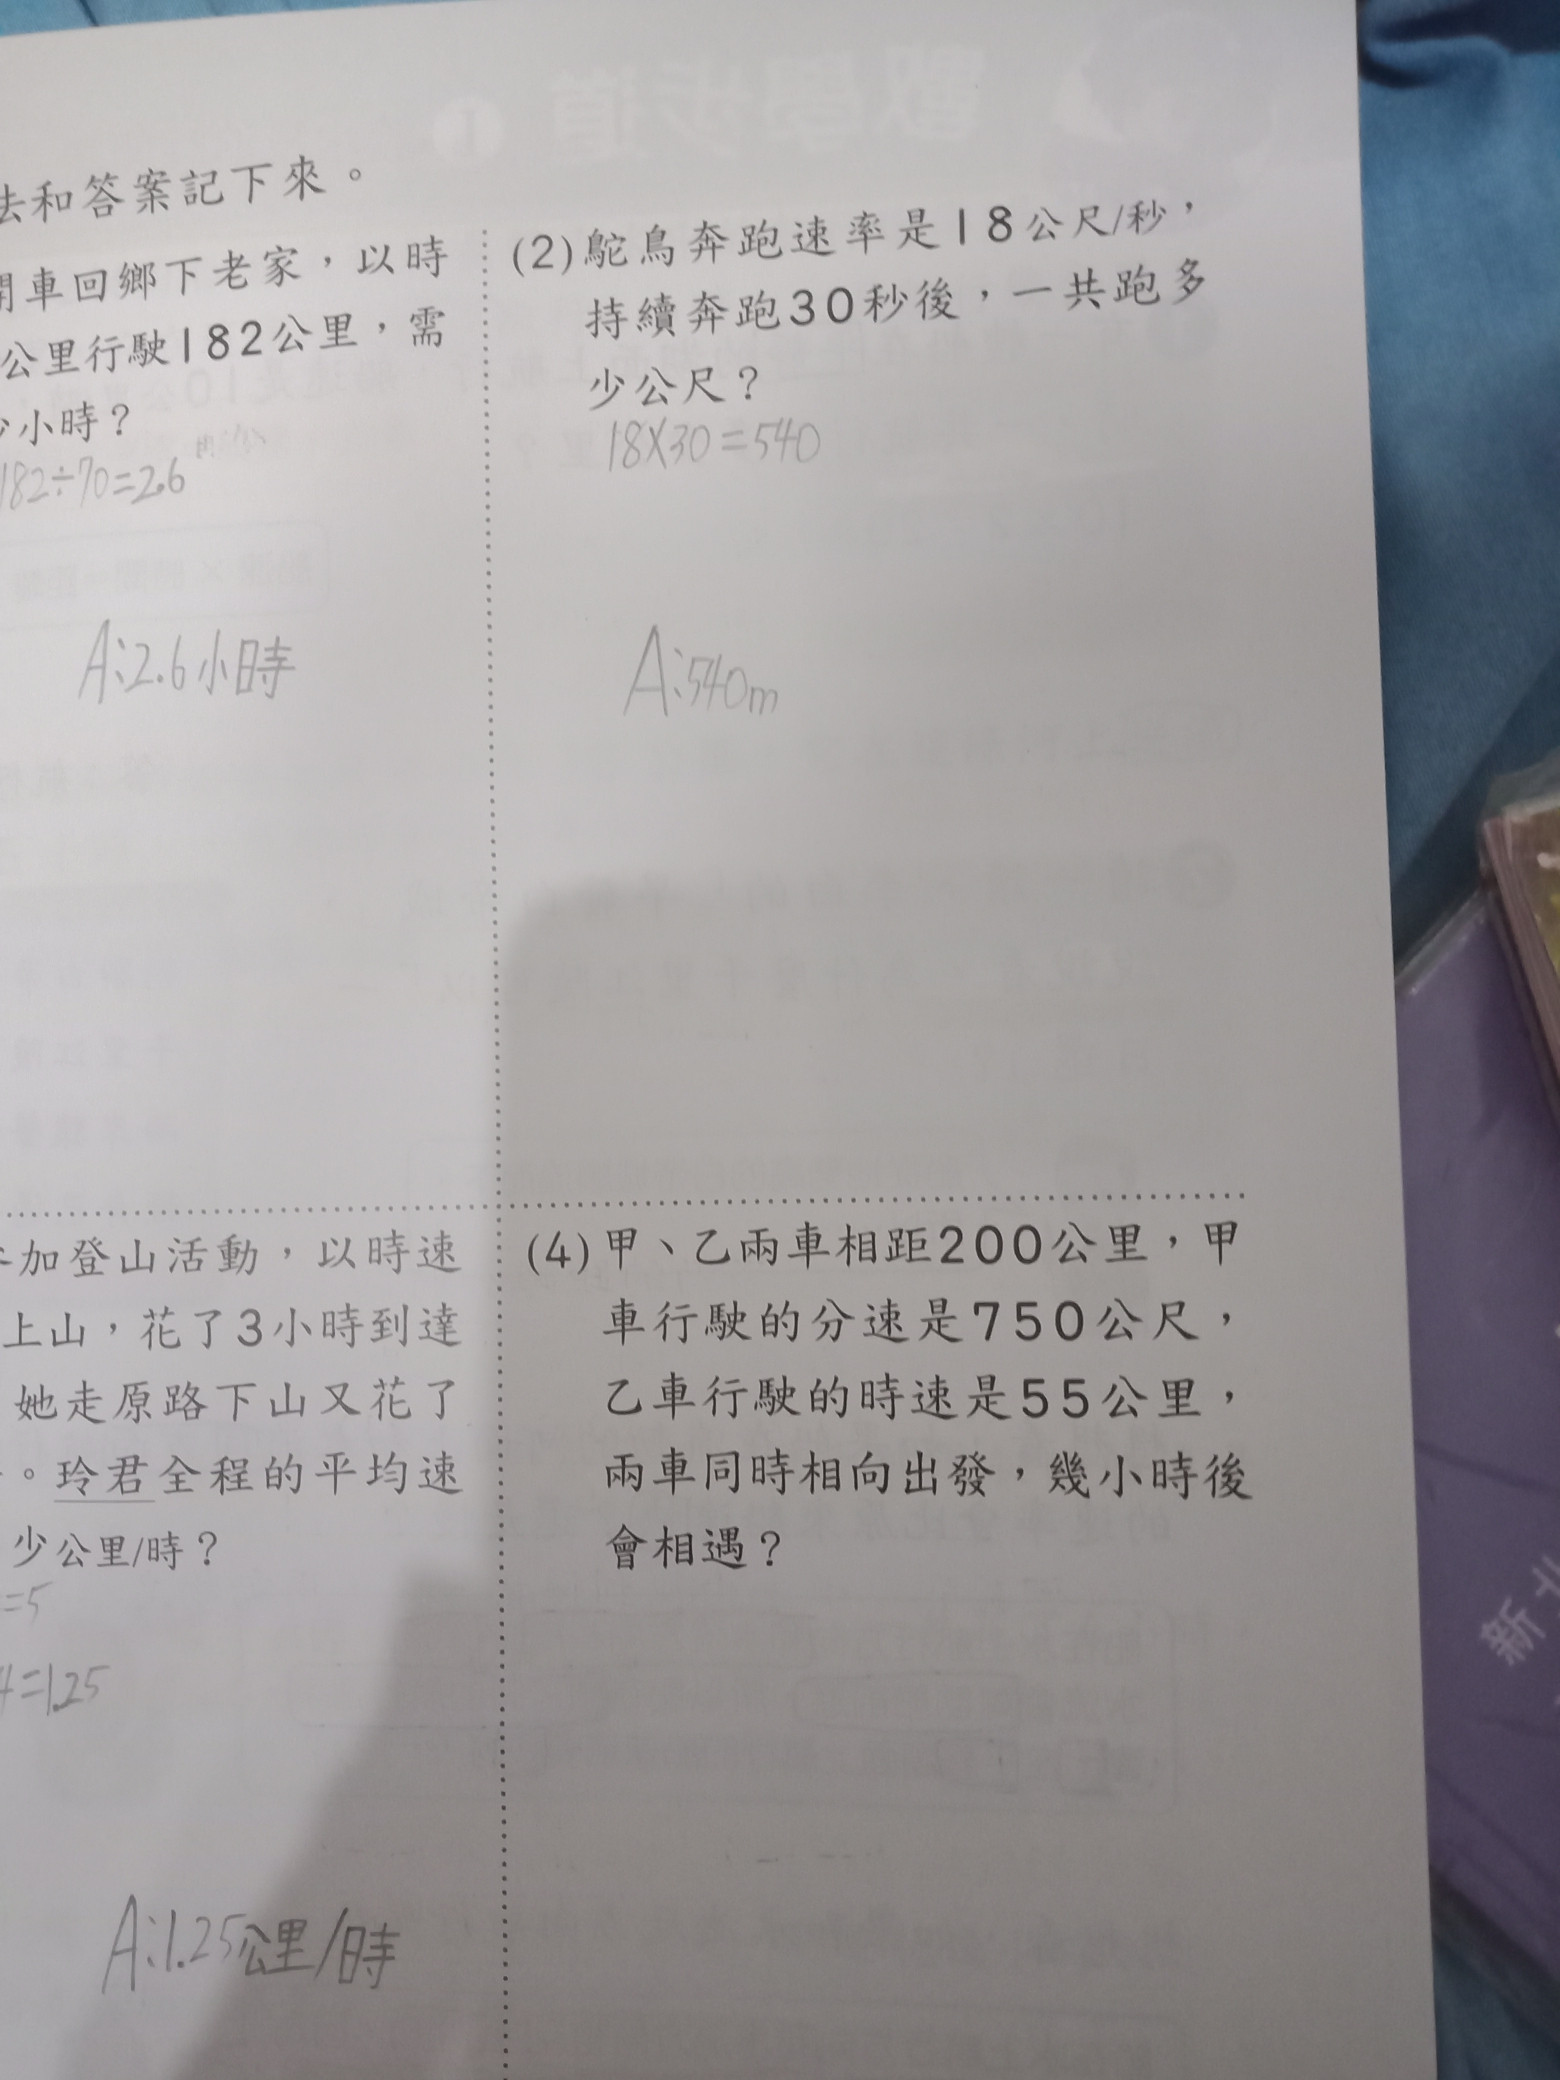 法和答案記下來。
開車回鄉下老家，以時
公里行駛182公里，需
少小時？
182÷70=2.6
A:2.6小時
(2)鴕鳥奔跑速率是18公尺/秒，
持續奔跑30秒後，一共跑多
少公尺？
18X30=540
A:540m
參加登山活動，以時速
上山，花了3小時到達
她走原路下山又花了
。玲君全程的平均速
少公里/時？
=5
4=1.25
A:1.25公里/時
(4)甲、乙兩車相距200公里，甲
車行駛的分速是750公尺，
乙車行駛的時速是55公里，
兩車同時相向出發，幾小時後
會相遇？
新北